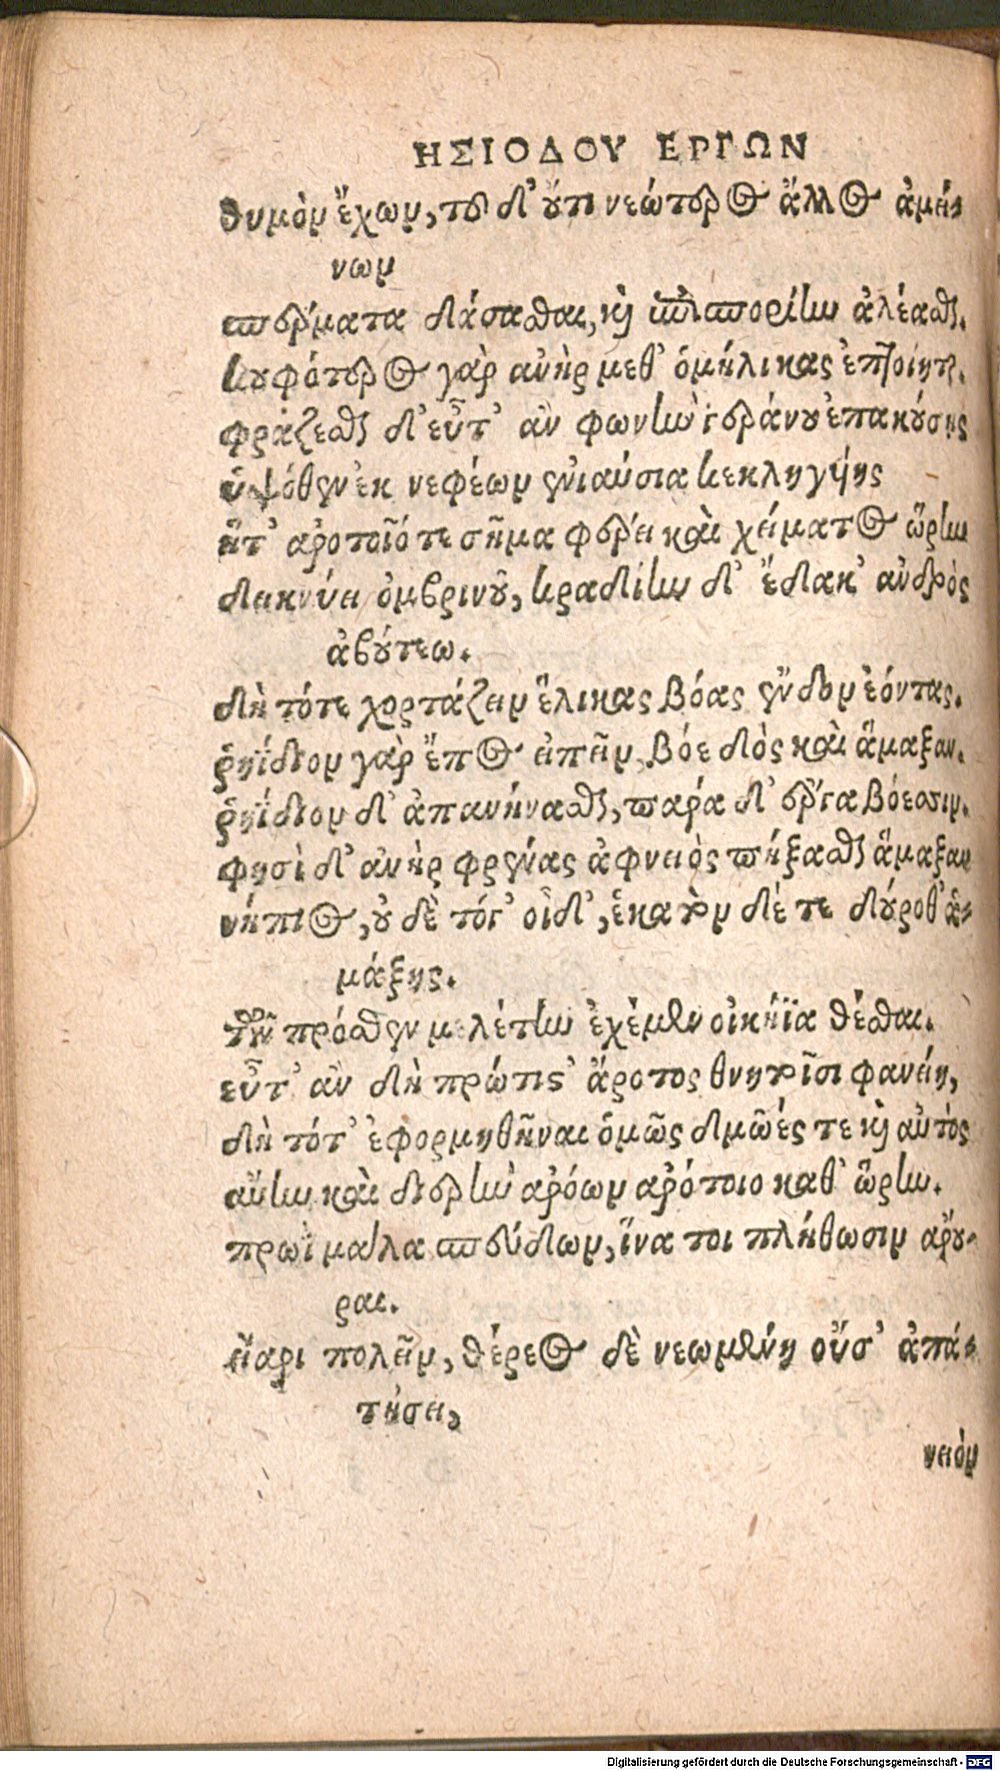 ΗΣΙΟΔΟΥ ΕΡΓΩΝ
θυμὸν ἔχων, τοῦ δ' οὔτι νεώτερος ἄλλος ἀμεί-
νων
σπέρματα δάσσασθαι, καὶ ἐπισπορίην ἀλέασθαι.
κουφότερος γὰρ ἀνὴρ μεθ' ὁμήλικας ἐπτοίηται.
φράζεσθαι δ' εὖτ' ἂν φωνὴν γεράνου ἐπακούσῃς
ὑψόθεν ἐκ νεφέων ἐνιαύσια κεκληγυίης
ἥτ' ἀρότοιό τε σῆμα φέρει καὶ χείματος ὥρην
δεικνύει ὀμβρινοῦ, κραδίην δ' ἔδακ' ἀνδρὸς
ἀβούτεω.
δὴ τότε χορτάζειν ἕλικας βόας ἔνδον ἐόντας.
ῥηΐδιον γὰρ ἔπος εἰπεῖν, βόε δὸς καὶ ἅμαξαν.
ῥηΐδιον δ' ἀπανήνασθαι, πάρα δ' ἔργα βόεσσιν.
φησὶ δ' ἀνὴρ φρένας ἀφνειὸς πήξασθαι ἅμαξαν
νήπιος, οὐδὲ τόγ' οἶδ', ἑκατὸν δέ τε δούραθ' ἁ-
μάξης.
τῶν πρόσθεν μελέτην ἐχέμεν οἰκήϊα θέσθαι.
εὖτ' ἂν δὴ πρώτιστ' ἄροτος θνητοῖσι φανείη,
δὴ τότ' ἐφορμηθῆναι ὁμῶς δμῶές τε καὶ αὐτὸς
αὔην καὶ διερὴν ἀρόων ἀρότοιο καθ' ὥρην.
πρωῒ μάλα σπεύδων, ἵνα τοι πλήθωσιν ἄρου-
ραι.
εἴαρι πολεῖν, θέρεος δὲ νεωμένη οὔσ' ἀπα-
τήσει,
νειὸν
Digitalisierung gefördert durch die Deutsche Forschungsgemeinschaft - DFG